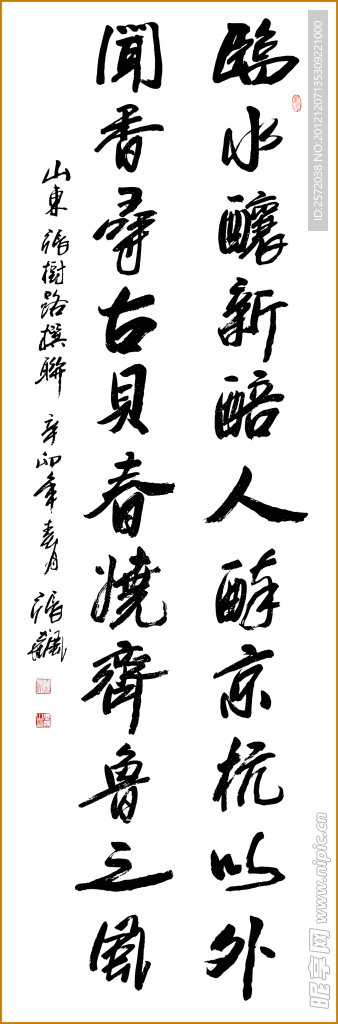 臨水釀新醅人醉京杭以外
聞香尋古貝春嬈齊魯之風
山東張樹路撰聯 辛卯年春月 張飆
ID:2572038 NO:20121207135309221000
昵享网 www.nipic.cn